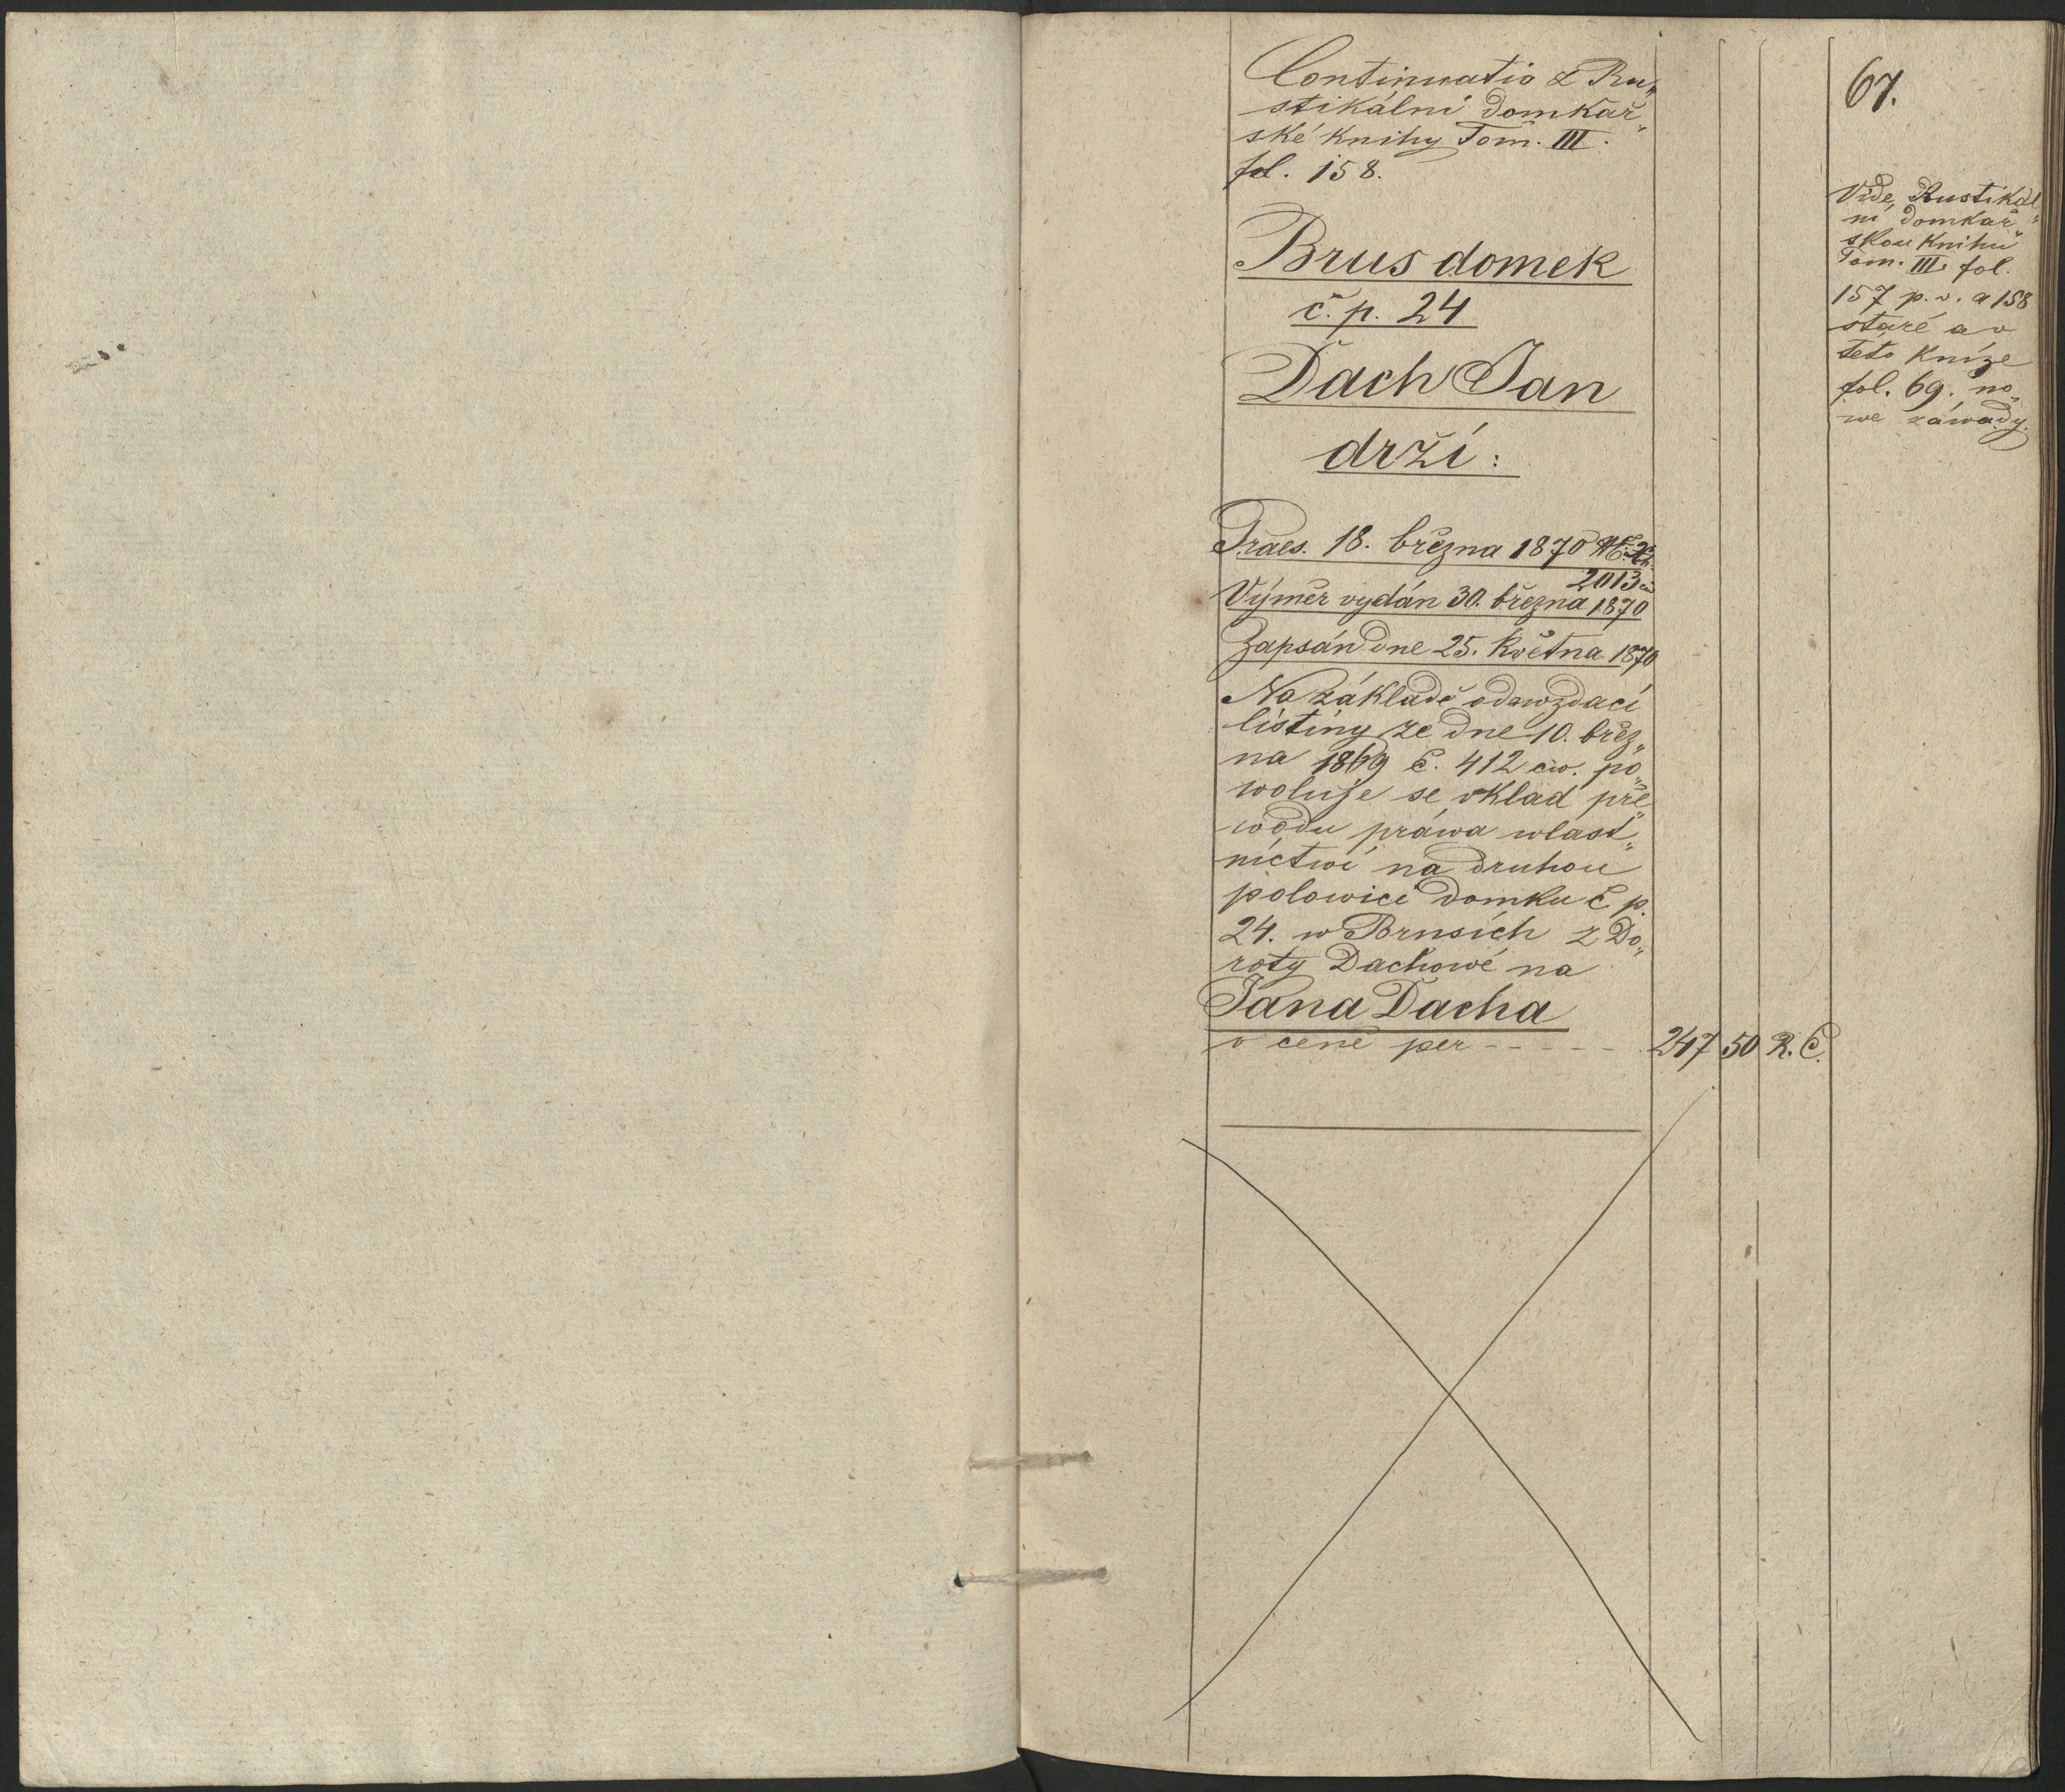 67.
Continuatio z Ru„
stikální domkář„
ské knihy Tom. III.
fol. 158.
Brus domek
č. p. 24
Dach Jan
drží:
Praes. 18. března 1870
2013 civ
Výměr vydán 30. března 1870
Zapsán dne 25. května 1870
Na základě odewzdací
listiny ze dne 10. břez„
na 1869 č. 412 civ. po„
woluje se vklad pře„
wodu práwa wlast„
nictwí na druhou
polowici domku č p.
24. w Brusích z Do„
roty Dachowé na
Jana Dacha
v ceně per - - - - - 247 50 R. Č.
Vide Rustikál„
ní domkář„
skou knihu
Tom. III. fol.
157 p. v. a 158
staré a v
této knize
fol. 69. no„
we záwady.